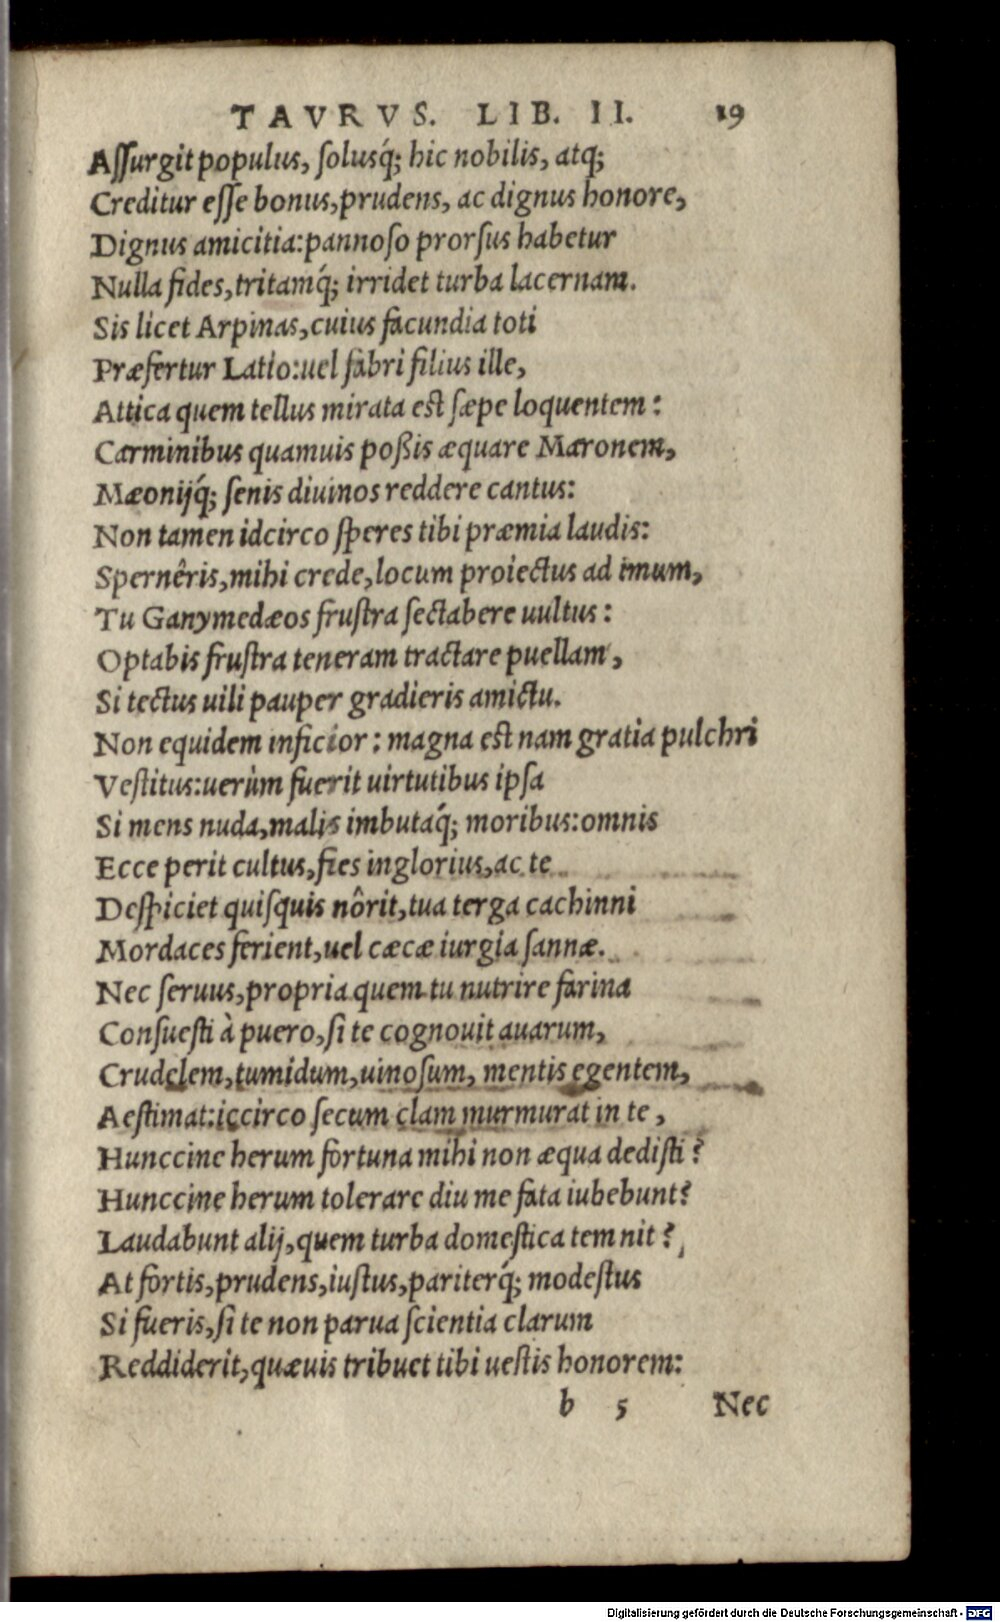 TAVRVS. LIB. II. 19
Aſſurgit populus, ſolusq́; hic nobilis, atq;
Creditur eſſe bonus,prudens, ac dignus honore,
Dignus amicitia:pannoſo prorſus habetur
Nulla fides,tritamq́; irridet turba lacernam.
Sis licet Arpinas,cuius facundia toti
Præfertur Latio:uel fabri filius ille,
Attica quem tellus mirata est ſæpe loquentem:
Carminibus quamuis poßis æquare Maronem,
Mæonijq́; ſenis diuinos reddere cantus:
Non tamen idcirco ſperes tibi præmia laudis:
Spernêris,mihi crede,locum proiectus ad imum,
Tu Ganymedæos fruſtra ſectabere uultus:
Optabis fruſtra teneram tractare puellam,
Si tectus uili pauper gradieris amictu.
Non equidem inficior: magna est nam gratia pulchri
Veſtitus:uerùm fuerit uirtutibus ipſa
Si mens nuda,malis imbutaq́; moribus:omnis
Ecce perit cultus,fies inglorius,ac te
Deſpiciet quiſquis nôrit,tua terga cachinni
Mordaces ferient,uel cæcæ iurgia ſannæ.
Nec ſeruus,propria quem tu nutrire farina
Conſueſti à puero,ſi te cognouit auarum,
Crudelem,tumidum,uinoſum, mentis egentem,
Aeſtimat:iccirco ſecum clam murmurat in te,
Hunccine herum fortuna mihi non æqua dediſti?
Hunccine herum tolerare diu me fata iubebunt?
Laudabunt alij,quem turba domeſtica temnit?
At fortis,prudens,iuſtus,pariterq́; modeſtus
Si fueris,ſi te non parua ſcientia clarum
Reddiderit,quæuis tribuet tibi ueſtis honorem:
b 5 Nec
Digitalisierung gefördert durch die Deutsche Forschungsgemeinschaft - DFG